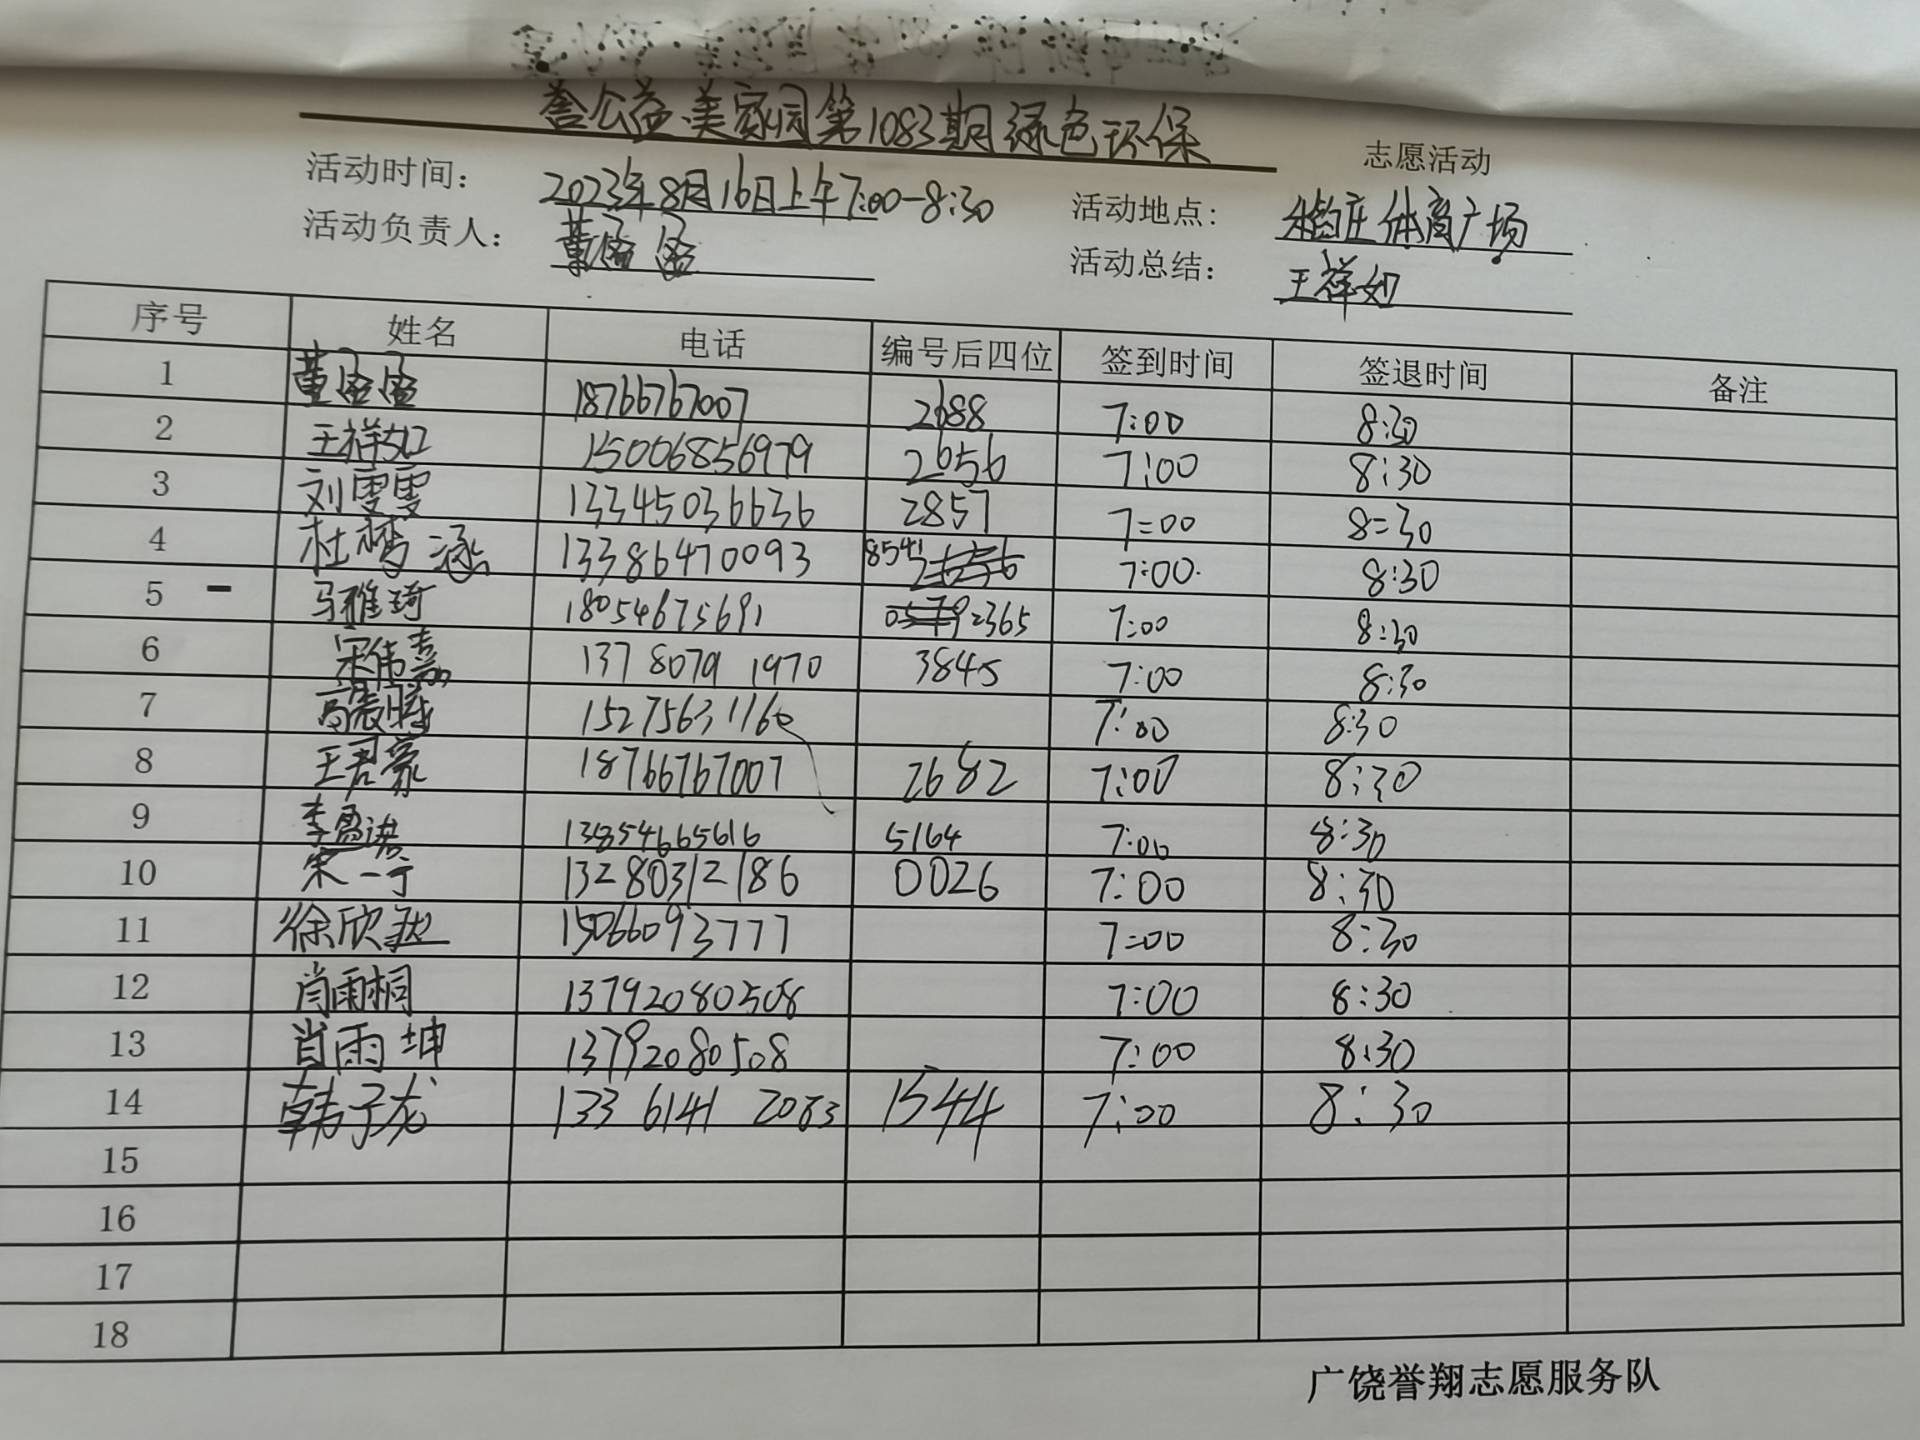 誉公益·美家园第1083期绿色环保 志愿活动
活动时间： 2023年8月16日上午7:00-8:30 活动地点： 体育广场
活动负责人： 董 活动总结： 王祥如
序号 姓名 电话 编号后四位 签到时间 签退时间 备注
1 董 18766767007 2688 7:00 8:30
2 王祥如 15006856979 2656 7:00 8:30
3 刘雯雯 13345036636 2857 7:00 8:30
4 杜梦涵 13386470093 8541 7:00 8:30
5 马雅琦 18054675691 2365 7:00 8:30
6 宋伟嘉 13780791970 3845 7:00 8:30
7 高晨曦 1527563116 7:00 8:30
8 王君豪 18766767007 2682 7:00 8:30
9 李盈诺 13854665616 5164 7:00 8:30
10 宋一宁 13280312186 0026 7:00 8:30
11 徐欣 15066093777 7:00 8:30
12 肖雨桐 13792080508 7:00 8:30
13 肖雨坤 13792080508 7:00 8:30
14 韩子龙 133 6141 2083 1544 7:00 8:30
15
16
17
18
广饶誉翔志愿服务队